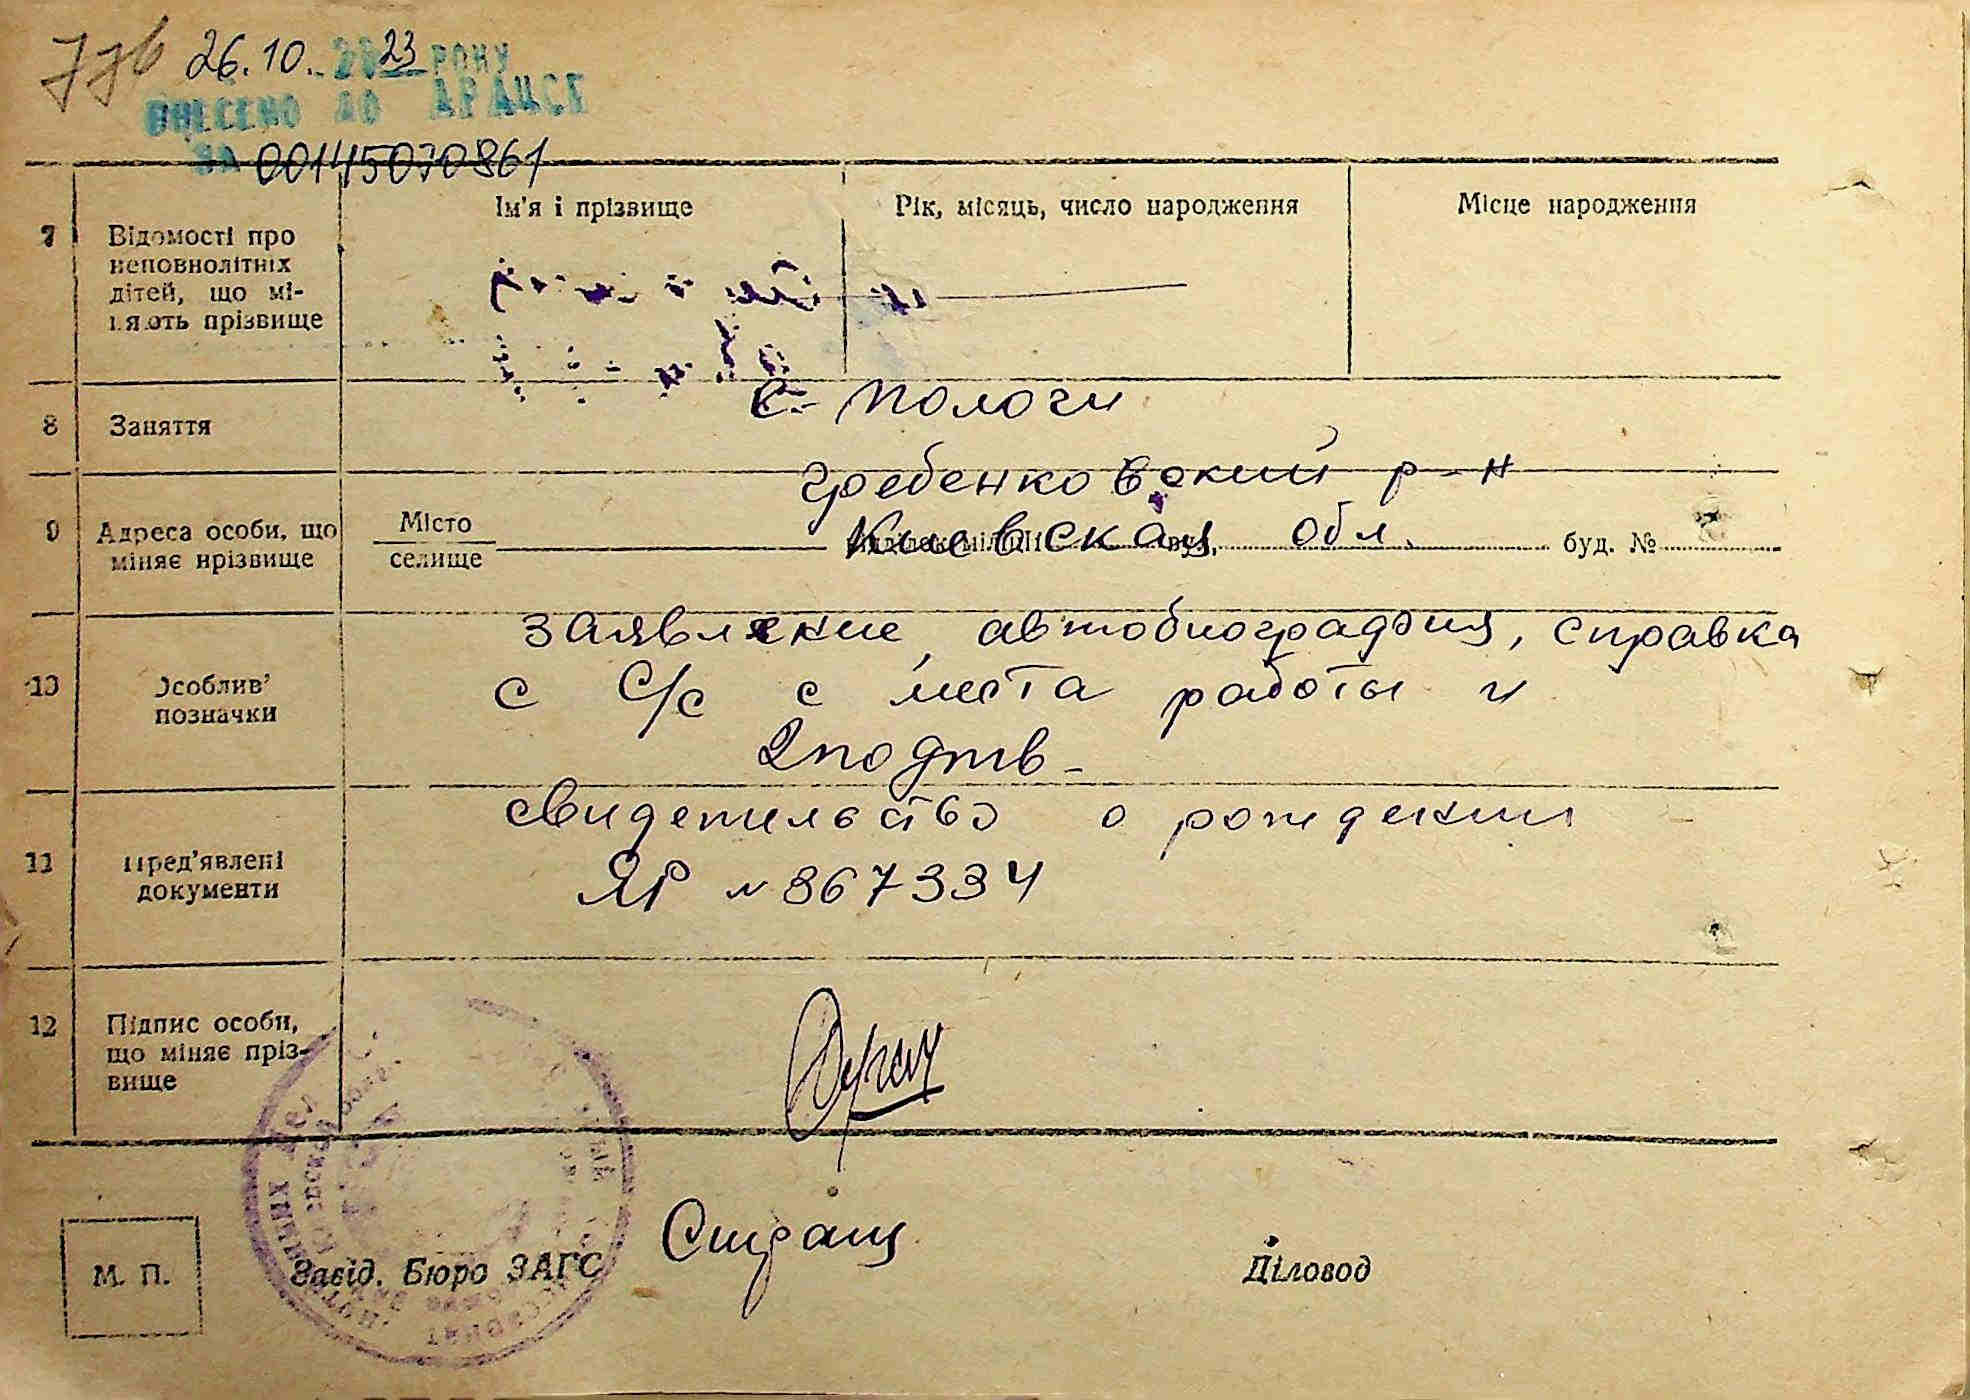 776 26.10.2023 РОКУ
ВНЕСЕНО ДО ДРАЦСГ
ЗА 00145070861
Ім'я і прізвище Рік, місяць, число народження Місце народження
7 Відомості про
неповнолітніх
дітей, що мі-
няють прізвище
с. Пологи
8 Заняття
Гребенковский р-н
9 Адреса особи, що
міняє прізвище
Місто
селище
Киевская обл. буд. №
заявление, автобиография, справка
10 Особливі
позначки
с С/с с места работы и
2 подтв-
свидетельство о рождении
11 Пред'явлені
документи
ЯР № 867334
12 Підпис особи,
що міняє пріз-
вище
М. П.
Завід. Бюро ЗАГС
Діловод